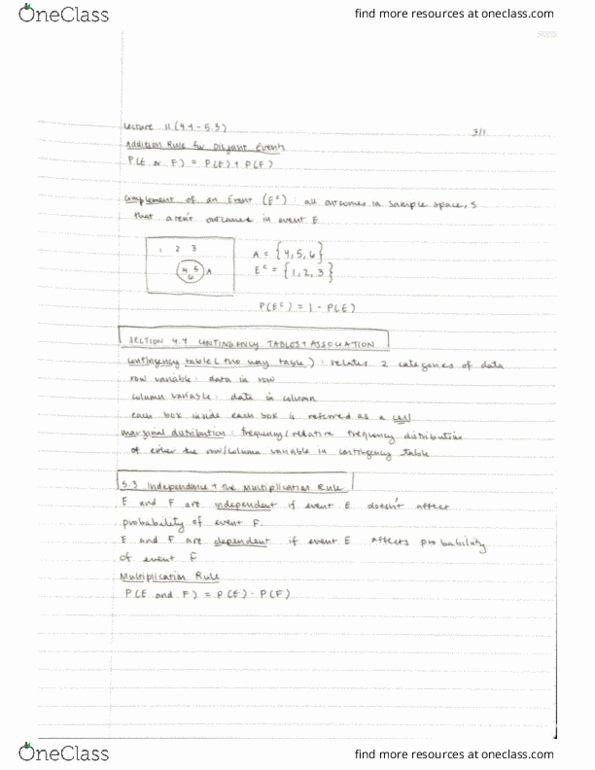 OneClass
find more resources at oneclass.com
Lecture 11 (4.4-5.3) 3/1
Addition Rule for Disjoint Events
P(E or F) = P(E) + P(F)
Complement of an Event (Eᶜ) : all outcomes in sample space, S
that aren't outcomes in event E
1 2 3
4 5
6 A
A = {4, 5, 6}
Eᶜ = {1, 2, 3}
P(Eᶜ) = 1 - P(E)
SECTION 4.4 CONTINGENCY TABLES + ASSOCIATION
contingency table (two way table) : relates 2 categories of data
row variable : data in row
column variable : data in column
each box inside each box is referred as a cell
marginal distribution : frequency / relative frequency distribution
of either the row/column variable in contingency table
5.3 Independence + the Multiplication Rule
E and F are independent if event E doesn't affect
probability of event F.
E and F are dependent if event E affects probability
of event F
Multiplication Rule
P(E and F) = P(E) · P(F)
OneClass
find more resources at oneclass.com